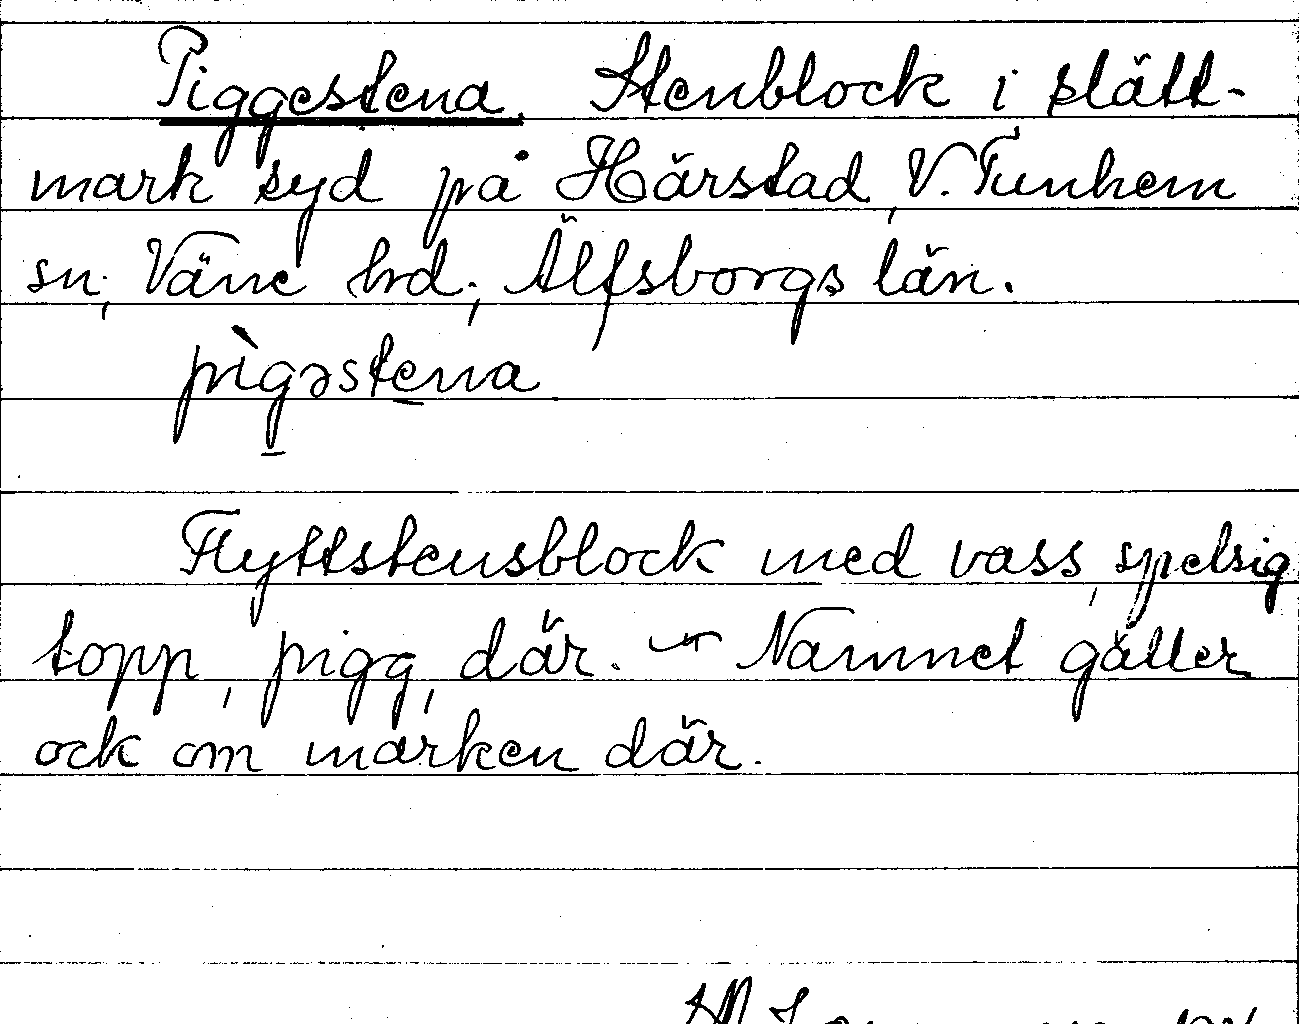 Piggestena. Stenblock i slätt-
mark syd på Härstad, V. Tunhem
sn, Väne hd, Älfsborgs län.
pìgəstena
Flyttstensblock med vass, spetsig
topp, pigg, där. — Namnet gäller
ock om marken där.